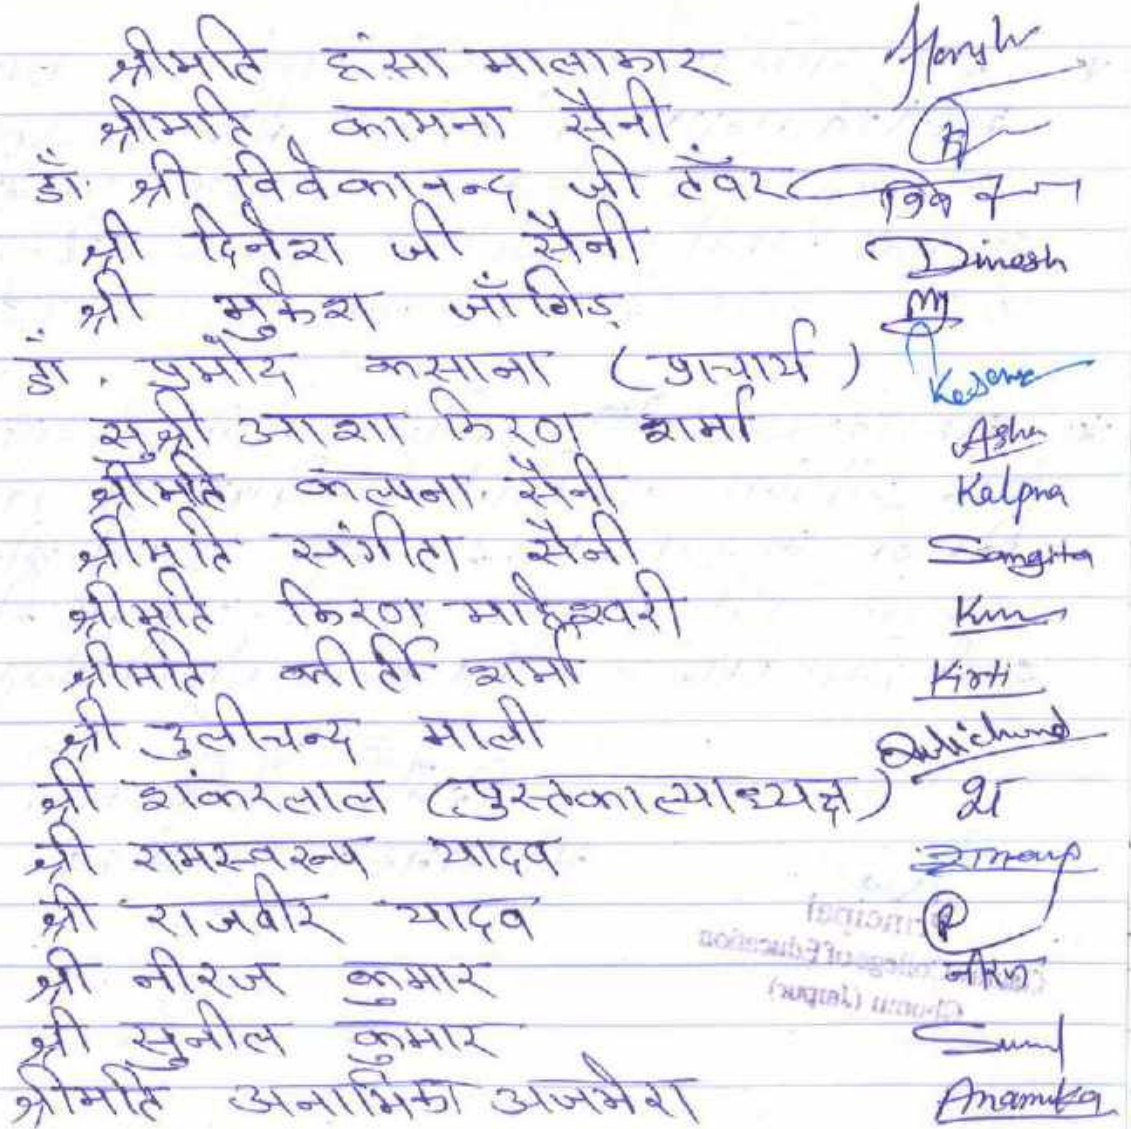 श्रीमति हंसा मालाकार Hansh
श्रीमति कामना सैनी
डॉ. श्री विवेकानन्द जी तँवर
श्री दिनेश जी सैनी Dinesh
श्री मुकेश जाँगिड़
डॉ. प्रमोद कसाना (प्राचार्य) Kasana
सुश्री आशा किरण शर्मा Asha
श्रीमति कल्पना सैनी Kalpna
श्रीमति संगीता सैनी Sangita
श्रीमति किरण माहेश्वरी
श्रीमति कीर्ती शर्मा Kirti
श्री दुलीचन्द माली Dulichand
श्री शंकरलाल (पुस्तकाल्याध्यक्ष)
श्री रामस्वरूप यादव
श्री राजवीर यादव
श्री नीरज कुमार नीरज
श्री सुनील कुमार Sunil
श्रीमति अनामिका अजमेरा Anamika
Principal
College of Education
Chomu (Jaipur)